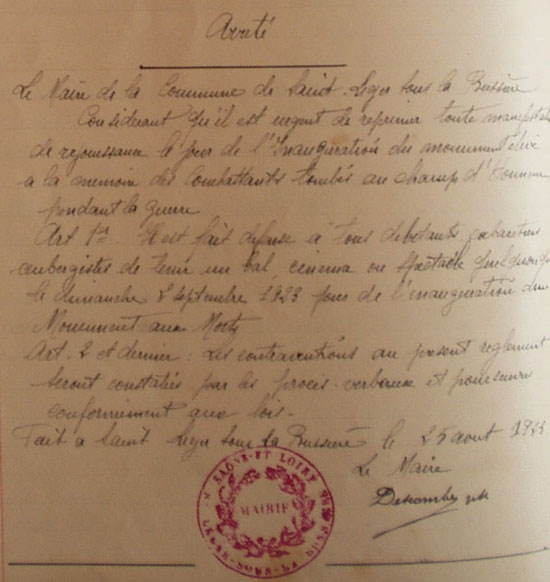 Arreté
Le Maire de la Commune de Saint-Leger sous la Bussière
Considerant qu'il est urgent de reprimer toute manifesta
de rejouissance le jour de l'Inauguration du monument élevé
a la memoir des Combattants tombés au champ d'Honneur
pendant la guerre
Art 1er. Il est fait defense à tous debitants, cabaretiers
aubergistes de tenir un bal, cinema ou spectacle quelconque
le dimanche 2 septembre 1923 jour de l'inauguration du
Monument aux Morts
Art. 2 et dernier : Les contraventions au present reglement
seront constatées par les proces-verbaux et poursuivies
conformement aux lois.
Fait a Saint Leger sous la Bussière le 25 aout 1923
Le Maire
SAÔNE-ET-LOIRE
MAIRIE
LEGER-SOUS-LA-BUSS